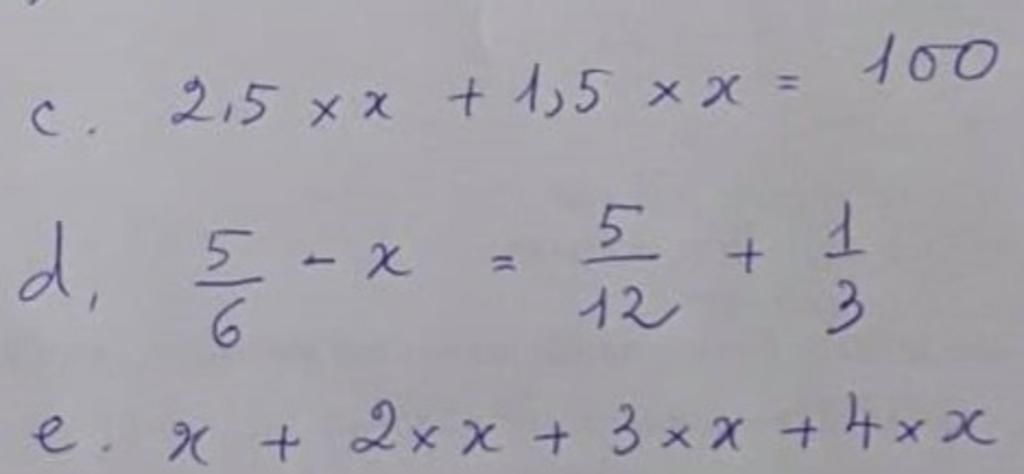 c. 2,5 × x + 1,5 × x = 100
d, 5/6 - x = 5/12 + 1/3
e. x + 2 × x + 3 × x + 4 × x